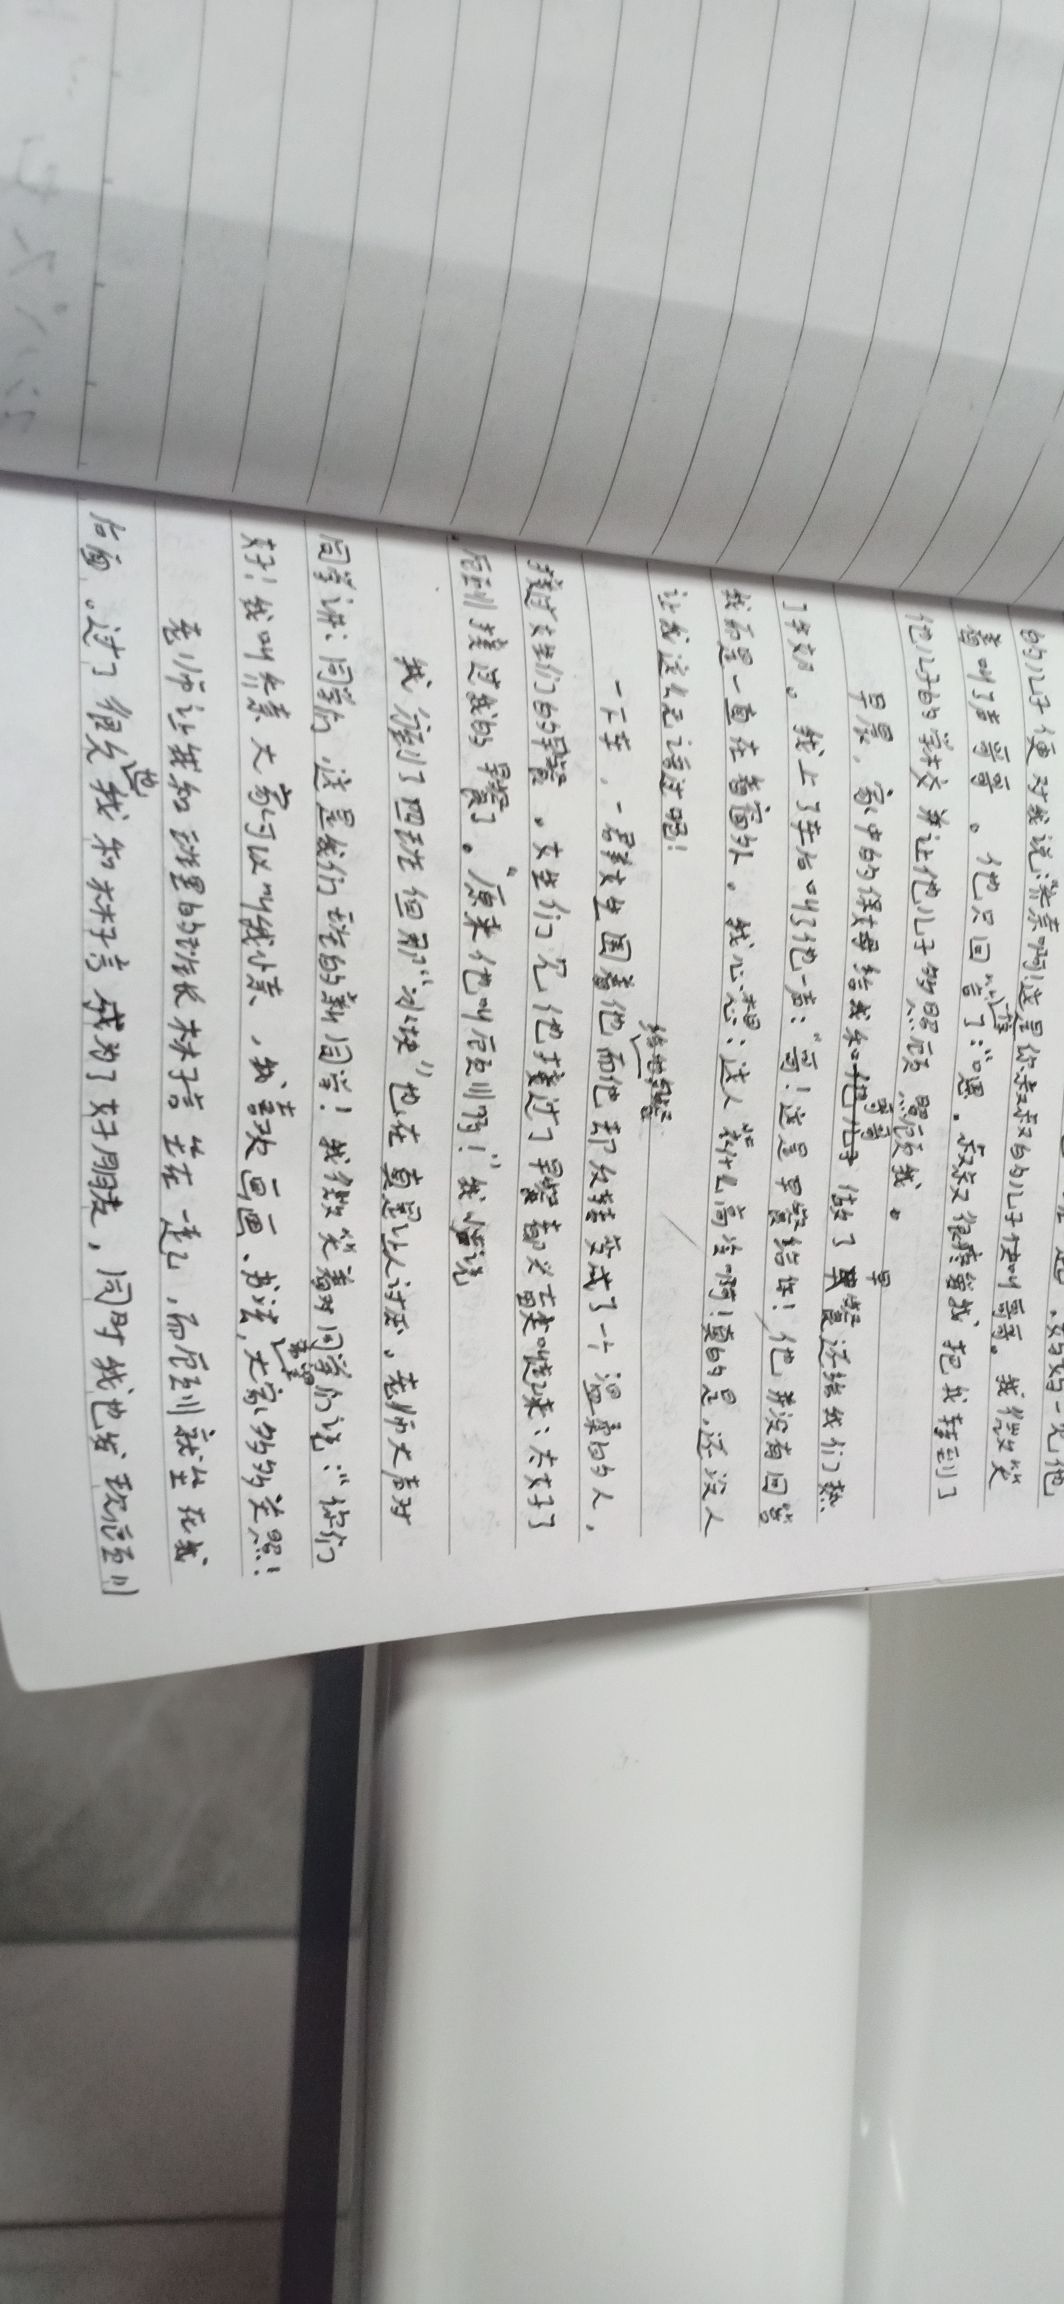 的儿子便对我说:紫素啊!这是你叔叔的儿子快叫哥哥。我微笑
着叫了声哥哥。他只回答了:"嗯。叔叔很疼爱我把我转到了
他儿子的学校并让他儿子多照顾照顾我。
早晨,家中的保姆给我和哥哥做了早餐还给我们热
了牛奶。我上了车后叫了他一声:"哥!这是早餐给你!他并没有回答
我而是一直在看窗外。我心想:这人装什么高冷啊!真的是,还没人
让我这么无语过呢!
一下车,一群女生围着他给他早餐而他却反转变成了一个温柔的人,
接过女生们的早餐。女生们见他接过了早餐都兴奋尖叫起来:太好了
接过我的早餐了。"原来他叫啊!"我说
我分到了四班但那"冰块"也在真是让人讨厌。老师大声对
同学讲:同学们,这是我们班的新同学!我微笑着对同学们说:"你们
好!我叫紫素大家可以叫我小素,我喜欢画画、书法,希望大家多多关照!
老师让我和班里的班长林子言坐在一起,而就坐在我
后面。过了很久我也和林子言成为了好朋友,同时我也发现